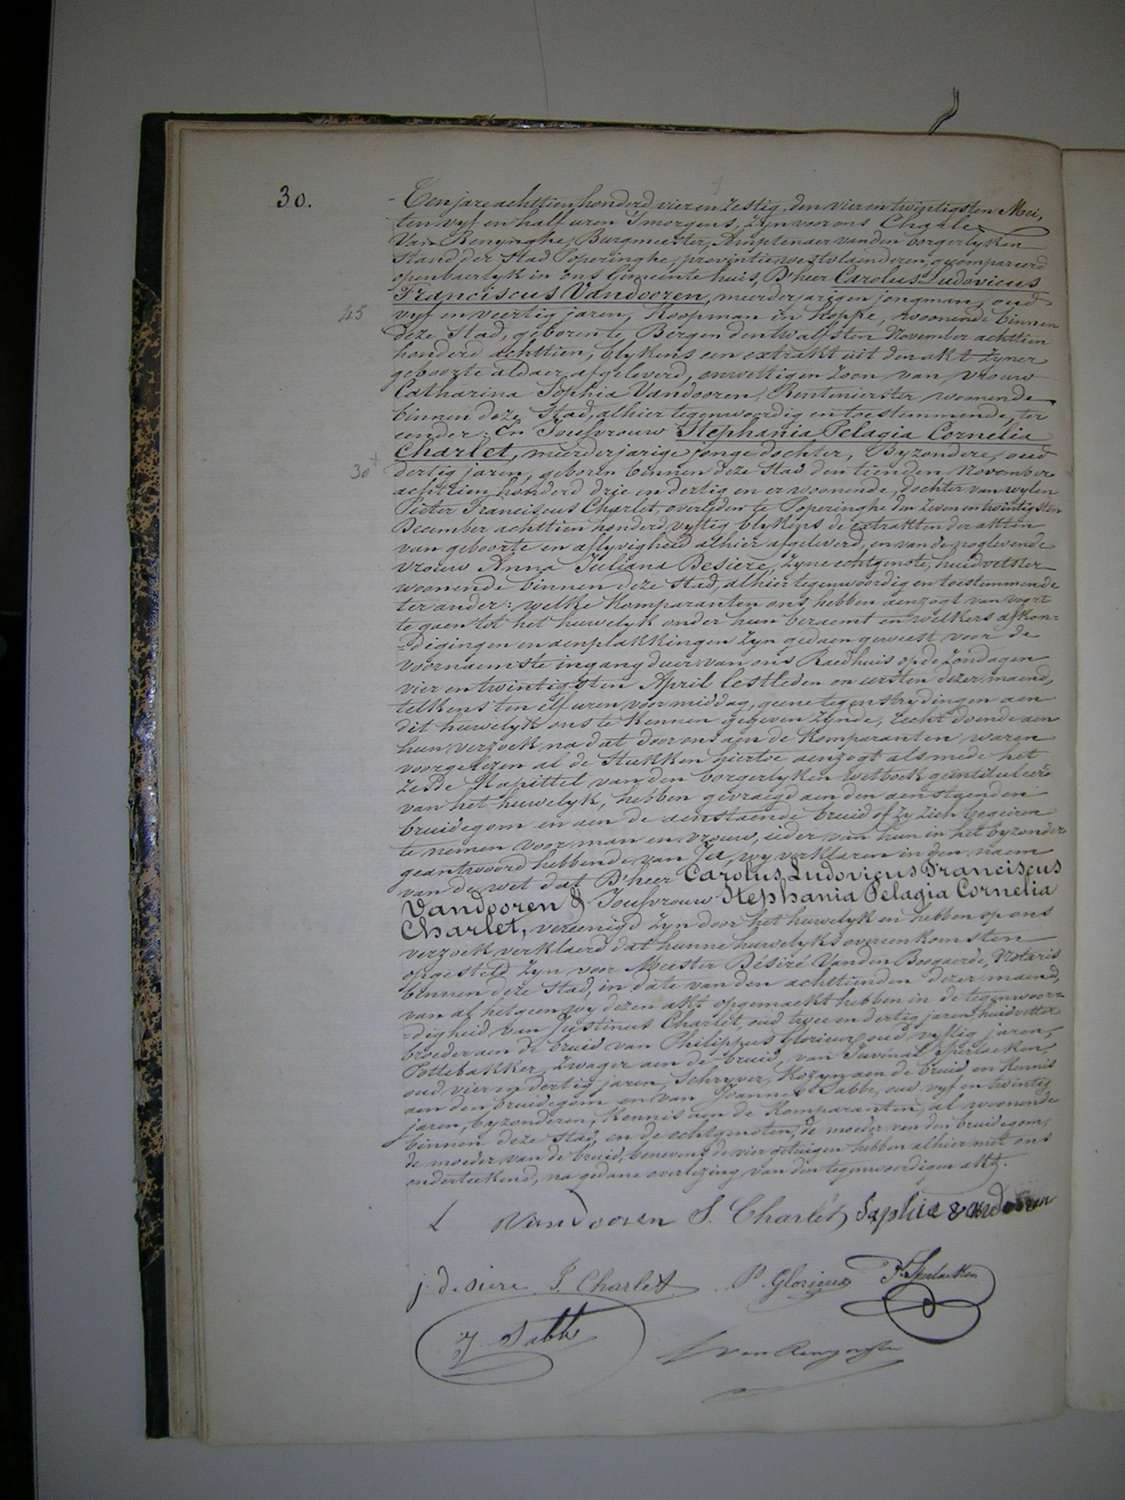 30.
Ten jare achttien honderd vier en zestig, den vier en twintigsten Mei,
ten vyf en half uren 'smorgens, zyn voor ons Charles
Van Renynghe, Burgmeester, Amptenaer van den borgerlyken
Stand der Stad Poperinghe, provintie westvlaenderen, gecompareerd
openbaerlyk in ons Gemeente huis, D'heer Carolus Ludovicus
Franciscus Vandooren, meerderjarigen jongman, oud
45
vyf en veertig jaren, Koopman in hoppe, woonende binnen
deze Stad, geboren te Bergen den twalfsten November achttien
honderd achttien, blykens een extrakt uit den akt zyner
geboorte aldaer afgeleverd, onwettigen zoon van vrouw
Catharina Sophia Vandooren, Rentenierster, woonende
binnen deze Stad, alhier tegenwoordig en toestemmende, ter
eender: En Joufvrouw Stephania Pelagia Cornelia
Charlet, meerderjarige jonge dochter, Byzondere, oud
30
dertig jaren, geboren binnen deze Stad den tienden November
achttien honderd drie en dertig en er woonende, dochter van wylen
Pieter Franciscus Charlet, overleden te Poperinghe den zeven en twintigsten
December achttien honderd vyftig blykens de extrakten der akten
van geboorte en aflyvigheid alhier afgeleverd, en van de noglevende
vrouw Anna Juliana Desiere, zyne echtgenote, huidvetster
woonende binnen deze Stad, alhier tegenwoordig en toestemmende
ter ander: welke Komparanten ons hebben aenzogt van voort
te gaen tot het huwelyk onder hun beraemt en welkers afkon-
=digingen en aenplakkingen zyn gedaen geweest voor de
voornaemste ingang deur van ons Raedhuis op de zondagen
vier en twintigsten April lestleden en eersten dezer maend,
telkens ten elf uren voormiddag, geene tegenstrydingen aen
dit huwelyk ons te kennen gegeven zynde, recht doende aen
hun verzoek na dat door ons aen de Komparanten waren
voorgelezen al de Stukken hiertoe aenzogt alsmede het
zesde Kapittel van den borgerlyken wetboek geintituleerd
van het huwelyk, hebben gevraegd aen den aenstaenden
bruidegom en aen de aenstaende bruid of zy zich begeiren
te nemen voor man en vrouw, ieder van hun in het byzonder
geantwoord hebbende van Ja, wy verklaren in den naem
van de wet dat D'heer Carolus Ludovicus Franciscus
Vandooren & Joufvrouw Stephania Pelagia Cornelia
Charlet, vereenigd zyn door het huwelyk en hebben op ons
verzoek verklaerd dat hunne huwelyks overeenkomsten
opgesteld zyn voor Meester Désiré Vanden Bogaerde, Notaris
binnen deze Stad, in date van den achttienden dezer maend,
van al hetgeen wy dezen akt opgemaekt hebben in de tegenwoor=
=digheid van Justinus Charlet, oud twee en dertig jaren, huidvetter
broeder aen de bruid van Philippus Glorieux, oud vyftig jaren,
Pottebakker, Zwager aen de bruid, van Juvinal Sperlaeken,
oud vier en dertig jaren, Schryver, Kozyn aen de bruid en Kennis
aen den bruidegom en van Joannes Sabbe, oud vyf en twintig
jaren, byzonderen, Kennis aen de Komparanten, al woonende
binnen deze Stad, en de echtgenoten, de moeder van den bruidegom,
de moeder van de bruid, benevens de vier getuigen hebben alhier met ons
onderteekend, na gedane overlezing van den tegenwoordigen akt.
L Vandooren S. Charlet Sophie vandooren
j. desiere J. Charlet P. Glorieux J. Sperlaeken
J. Sabbe
C van Renynghe